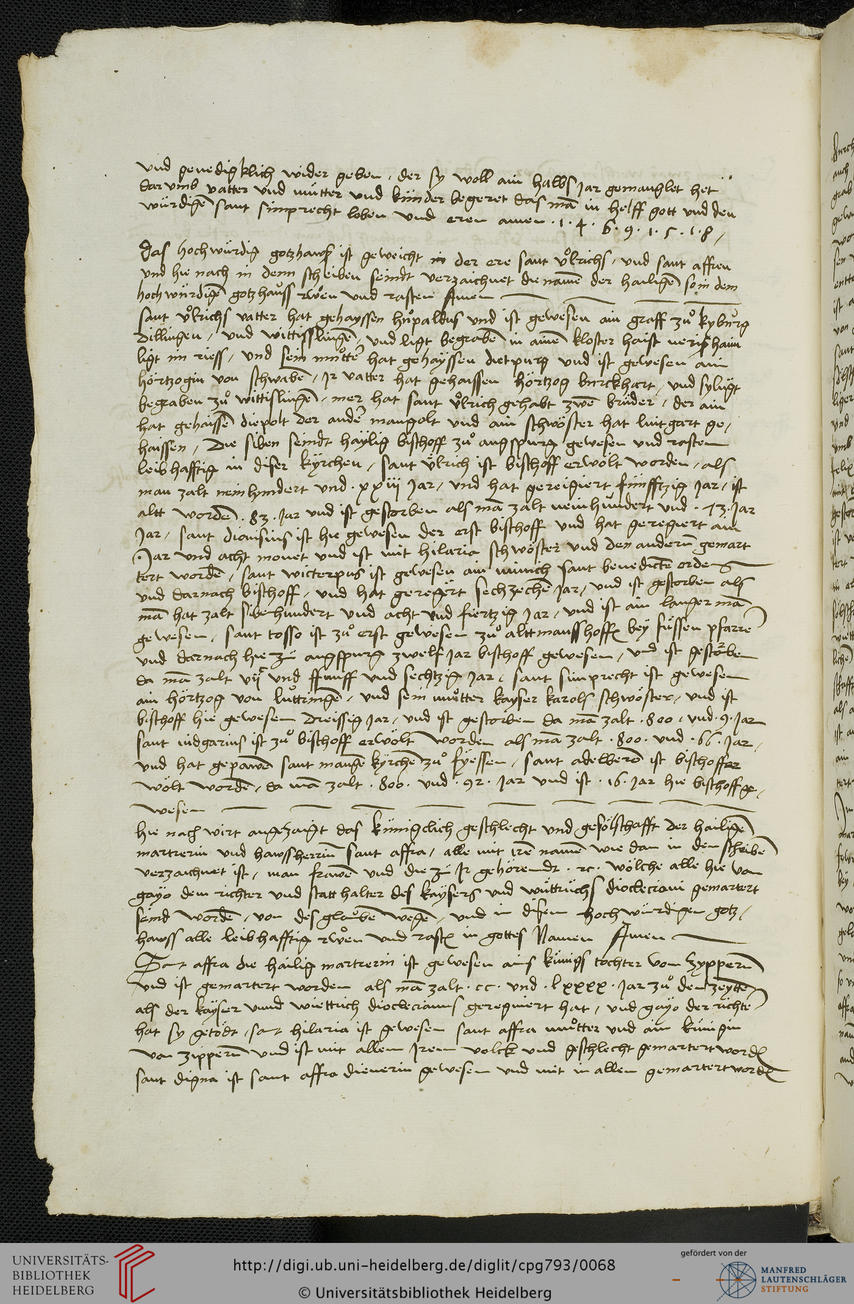 und genedigklich wider geben, der sy woll ain halbs Jar gemanglet het
darumb vatter und muetter und kinder begeret das mā in helff gott und den
würdigē sant simprecht loben und eren amen · 1 · 4 · 6 · 9 · 1 · 5 · 1 · 8 ,
Das hochwürdig gotzhaws ist geweicht in der ere sant vͦlrichs, und sant affren
und hie nach in denn scheiben seindt verzaichnet die namē der hailigē so in dem
hochwürdigē gotzhauss rwͦen und rasten Amen
sant vͦlrichs vatter hat gehayssen hupaldus und ist gewesen ain graff zuͦ kyburg
Dillingen, und wittisslingē, und ligt begrabē in ainē kloster haist nerishaim
ligt im riess, und sein muͦttē hat gehayssen dietpurg und ist gewesen ain
hörtzogin von schwabē, Ir vatter hat gehaissen hörtzog burckhart, und sy ligt
begraben zuͦ wittislingē, mer hat sant vͦlrich gehabt zwē brüder, der ain
hat gehaissē diepolt der ander mangolt und ain schwöster hat luitgart ge,
haissen, Die siben seindt haylig bischoff zuͦ augspurg gewesen und rasten
leibhafftig in diser kyrchen, sant vͦlrich ist bischoff erwölt worden, als
man zalt neinhundert und · xxiii Jar, und hat geregiert finfftzig Jar, ist
altt wordē · 83 · Jar und ist gestorben als mā zalt neinhundert und · 73 · Jar
Jar, sant dionisius ist hie gewesen der erst bischoff und hat geregiert ain
Jar und acht monet und ist mit hilaria schwöster und den andern gemart
tert wordē, sant wicterpus ist gewesen ain münich sant benedictē orden
und darnach bischoff, und hat geregirt sechzechē Jar, und ist gestorben als
mā hat zalt sibehundert und acht und fiertzig Jar, und ist ain langer mā
gewesen, sant tosso ist zuͦ erst gewesen zuͦ alttmansshoffē bey füssen pfarrē
und darnach hie zuͦ augspurg zwelf Jar bischoff gewesen, und ist gestorben
da mā zalt vijͨ und finff und sechtzig Jar, sant simprecht ist gewesen
ain hörtzog von luttringē, und sein muͦtter kayser karols schwöster, und ist
bischoff hie gewesen dreissig Jar, und ist gestorben da mā zalt · 800 · und · 9 · Jar
sant nidgarius ist zuͦ bischoff erwölt worden als mā zalt · 800 · und · 66 · Jar,
und hat gepawē sant mangē kyrche zuͦ fyessen, sant adelberō ist bischoff er
wölt wordē, da mā zalt · 800 · und · 92 · Jar und ist · 16 · Jar hie bischoff ge,
wesen
Hie nach wirt angezaigt das künigclich geschlecht und gesölschafft der hailigē
martrerin und hawssherrin sant affra, alle mit irē namē wie dan in den scheibē
verzaichnet ist, man frawen und die zuͦ Ir gehörendt · ꝛc · wölche alle hie von
gayo dem richter und statthalter des kaysers und wuttrichs diocleciani gemartert
seind wordē, von des glaubē wegē, und in disem hochwürdigen gotz,
hawss alle leibhafftig rwͦen und rastē in gottes Namen Amen
Sant affra die hailig martrerin ist gewesen ains künigs tochter von Zyppern
und ist gemartert worden als mā zalt · cc · und · lxxxx · Jar zuͦ den zeyttē
als der kayser und wiettrich dioclecianus geregniert hat, und gayo der richter
hat sy getödt, sant hilaria ist gewesen sant affra muͦtter und ain künigin
von Zippern und ist mit allem Irem volck und geschlecht gemartert wordē
sant digna ist sant affra dienerin gewesen und mit in allen gemartert wordē
UNIVERSITÄTS-
BIBLIOTHEK
HEIDELBERG
http://digi.ub.uni-heidelberg.de/diglit/cpg793/0068
© Universitätsbibliothek Heidelberg
gefördert von der
MANFRED
LAUTENSCHLÄGER
STIFTUNG